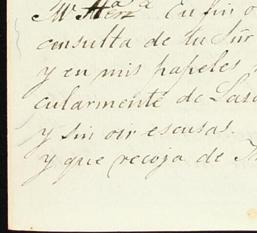 Mª Hezª En fin o
consulta de tu Sur
y en mis papeles
cularmente de Las
y sin oir escusas.
y que recoja de